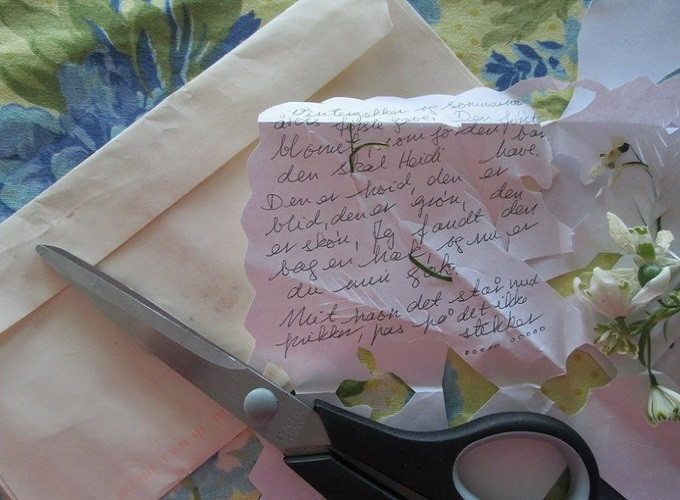 Vintergækker og sommerens
årets første gave. Den første
blomst, som jorden bar
den skal Heidi have.
Den er hvid, den er
blid, den er grøn, den
er skøn, Jeg fandt den
bag en hæk, og nu er
du min gæk.
Mit navn det står med
prikker, pas på det ikke
stikker
..... .....